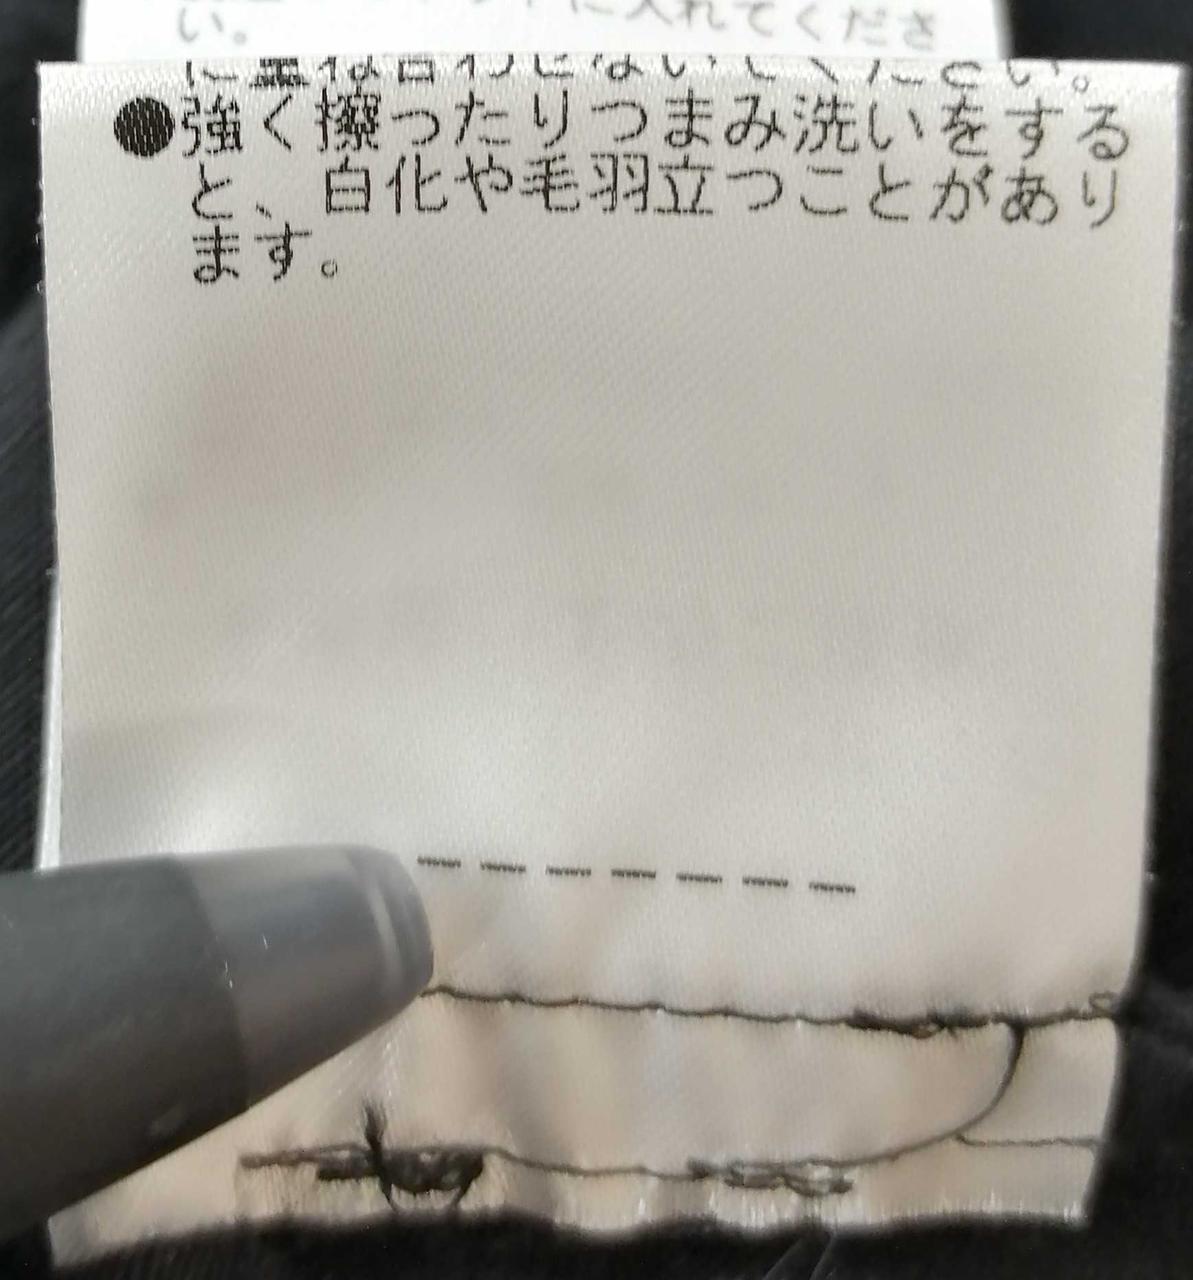 に入れてくださ
い。
に重ね合わせないでください。
●強く擦ったりつまみ洗いをする
と、白化や毛羽立つことがあり
ます。